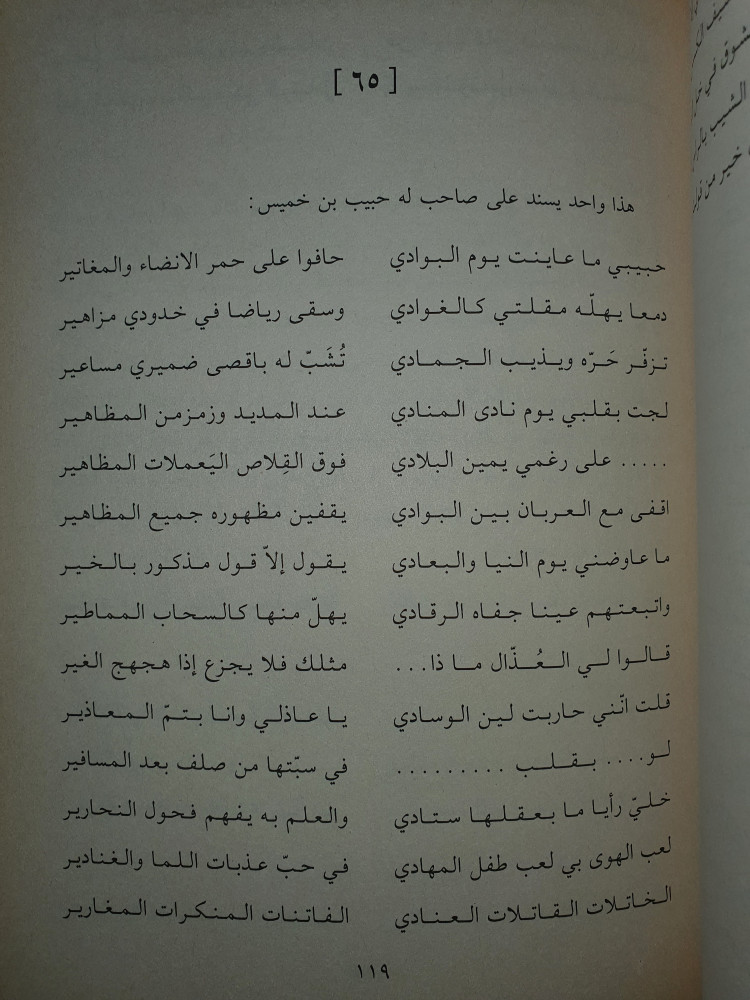 [ ٦٥ ]
هذا واحد يسند على صاحب له حبيب بن خميس:
حبيبي ما عاينت يوم البوادي حافوا على حمر الانضاء والمغاتير
دمعا يهلّه مقلتي كالغوادي وسقى رياضا في خدودي مزاهير
تزفّر حَرّه ويذيب الجمادي تُشَبّ له باقصى ضميري مساعير
لجت بقلبي يوم نادى المنادي عند المديد وزمزمن المظاهير
..... على رغمي يمين البلادي فوق القِلاص اليَعملات المظاهير
اقفى مع العربان بين البوادي يقفين مظهوره جميع المظاهير
ما عاوضني يوم النيا والبعادي يقول إلاّ قول مذكور بالخير
واتبعتهم عينا جفاه الرقادي يهلّ منها كالسحاب المماطير
قالوا لي العُذّال ما ذا... مثلك فلا يجزع إذا هجهج الغير
قلت انّني حاربت لين الوسادي يا عاذلي وانا بتمّ المعاذير
لو.... بقلب ......... في سبّتها من صلف بعد المسافير
خليّ رأيا ما بعقلها ستادي والعلم به يفهم فحول النحارير
لعب الهوى بي لعب طفل المهادي في حبّ عذبات اللما والغنادير
الخاتلات القاتلات العنادي الفاتنات المنكرات المغارير
١١٩